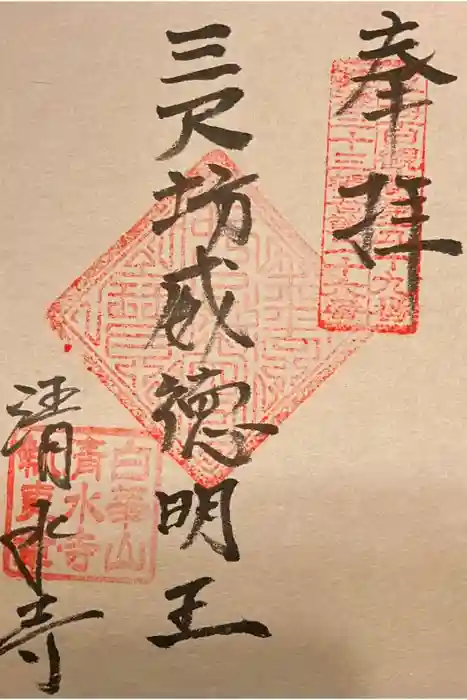 奉拝
三尺坊威徳明王
清水寺
白華山
清水寺